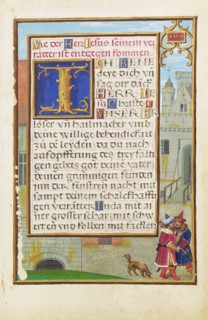 Wie der Her Jesus seinem ver
ratter ist entgegen kommen.
ICH BEUE
dere dich vn
sag dir danck
HERR JE
su Criste
VNSER ER
löser vn hailmacher vmb
deine willige behendickait
zu
leyden da du nach
auffopfferung des drey faltt
gen gebets got deine vatter
deinen
feinden
inn der finstren nacht mit
sampt deinem schalckhafft
gen verrätter Iuda mit ai
ner grosser schar mit schw
ert en vnd kolben mit fackeln